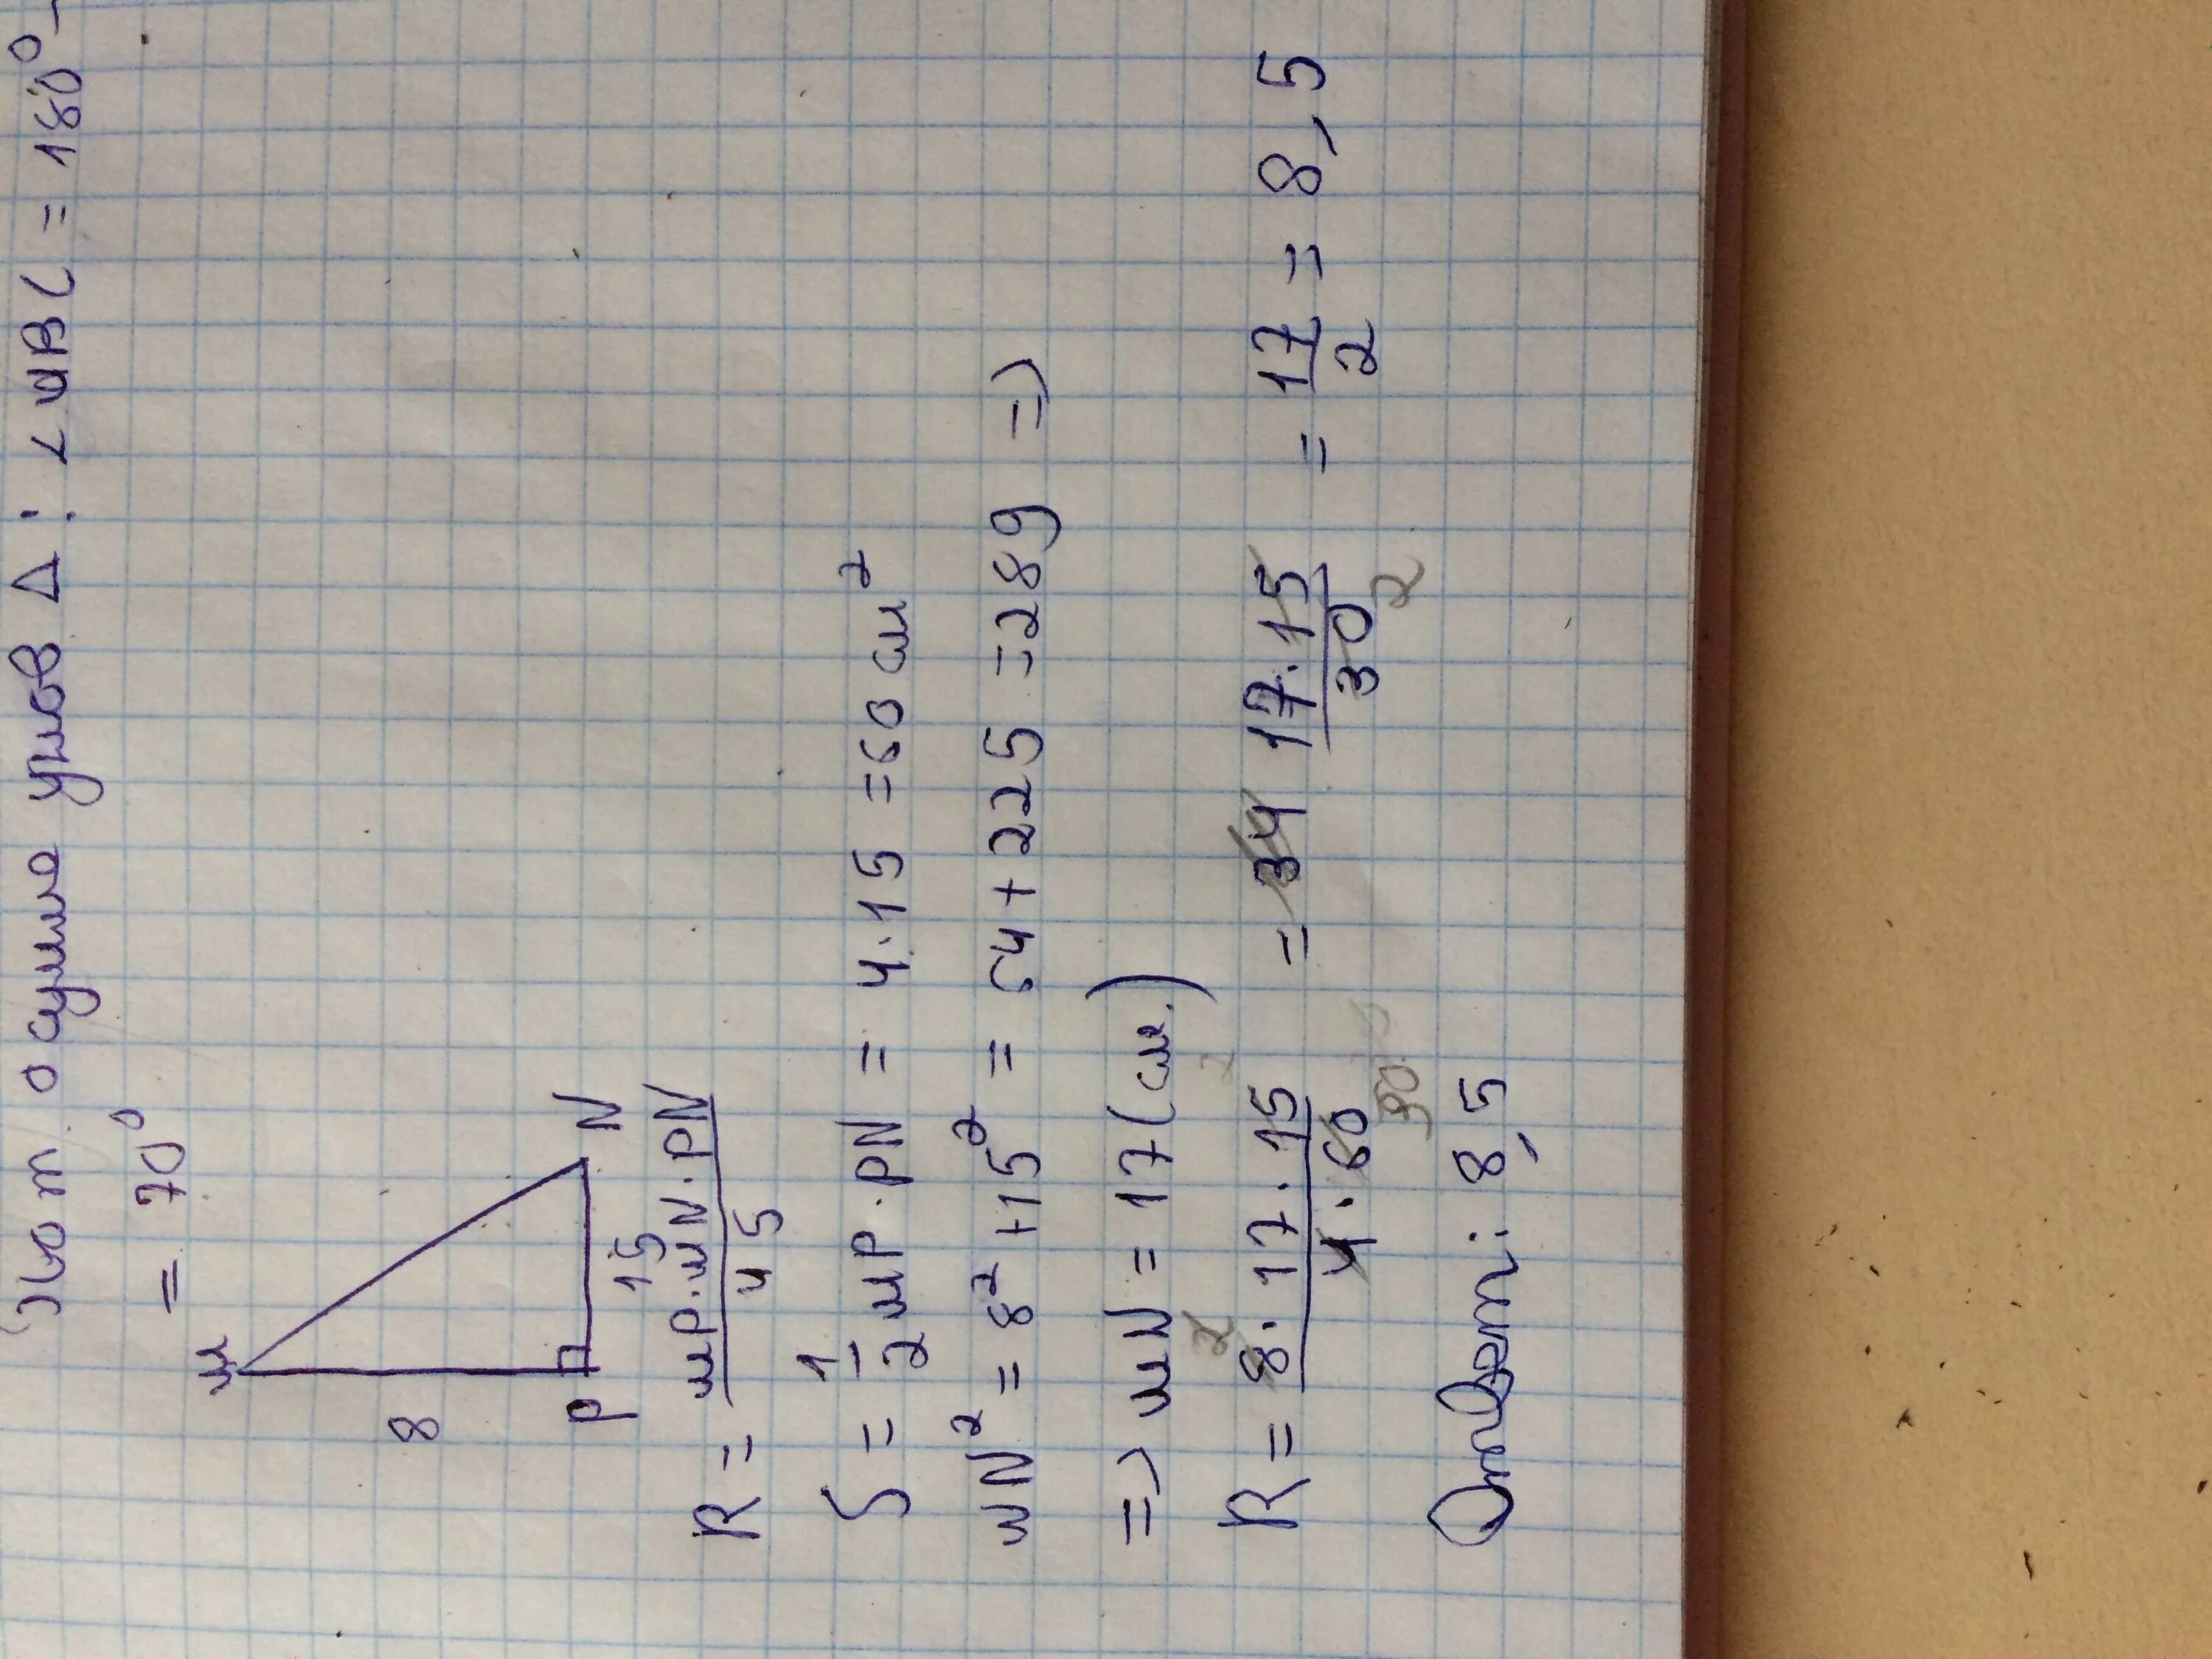 т о сумме углов Δ: ∠ MBC = 180° -
= 70°
M
8
P
15
N
R = MP · MN · PN / 4S
S = 1/2 MP · PN = 4 · 15 = 60 см²
MN² = 8² + 15² = 64 + 225 = 289 =>
=> MN = 17 (см)
R = 8 · 17 · 15 / 4 · 60 = 34 17 · 15 / 30 = 17 / 2 = 8,5
2
2
30
2
Ответ: 8,5